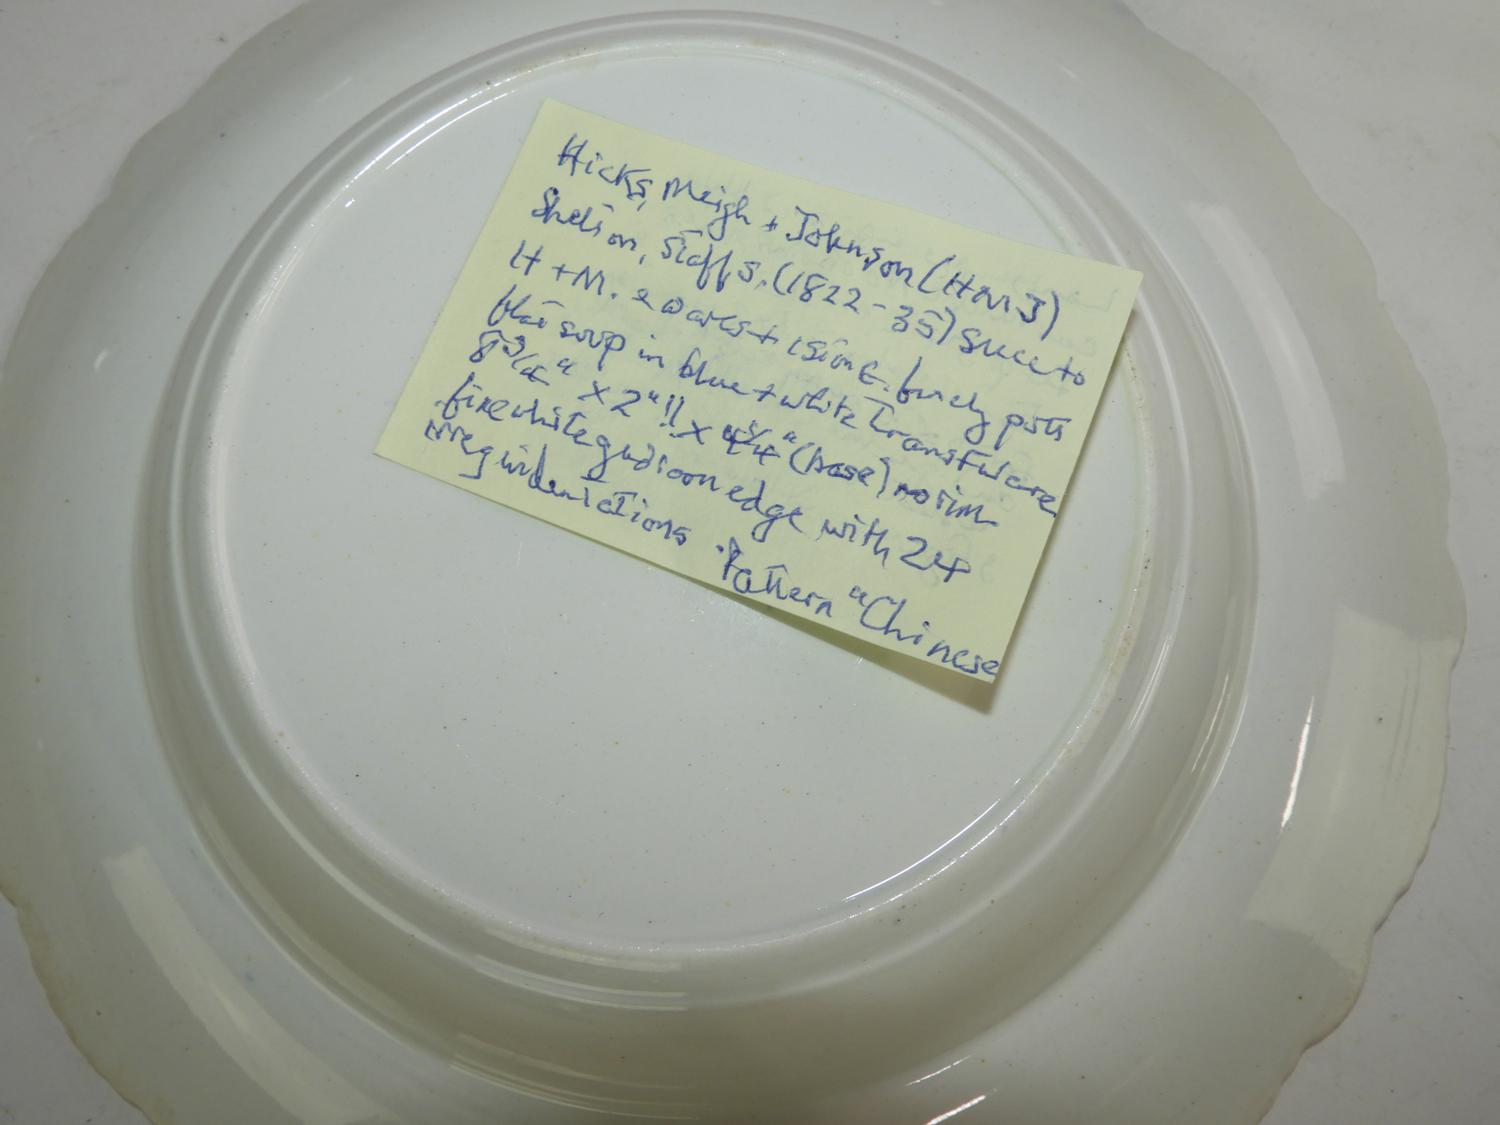 Hicks, Meigh + Johnson (HMJ)
Shelton, Staffs. (1822-35) succ to
H + M. e wares + istone. finely pott
flat soup in blue + white Transfware
8 3/4" x 2"!! x 4 3/4" (base) no rim
fine white gadroon edge with 24
irreg indentations. Pattern "Chinese